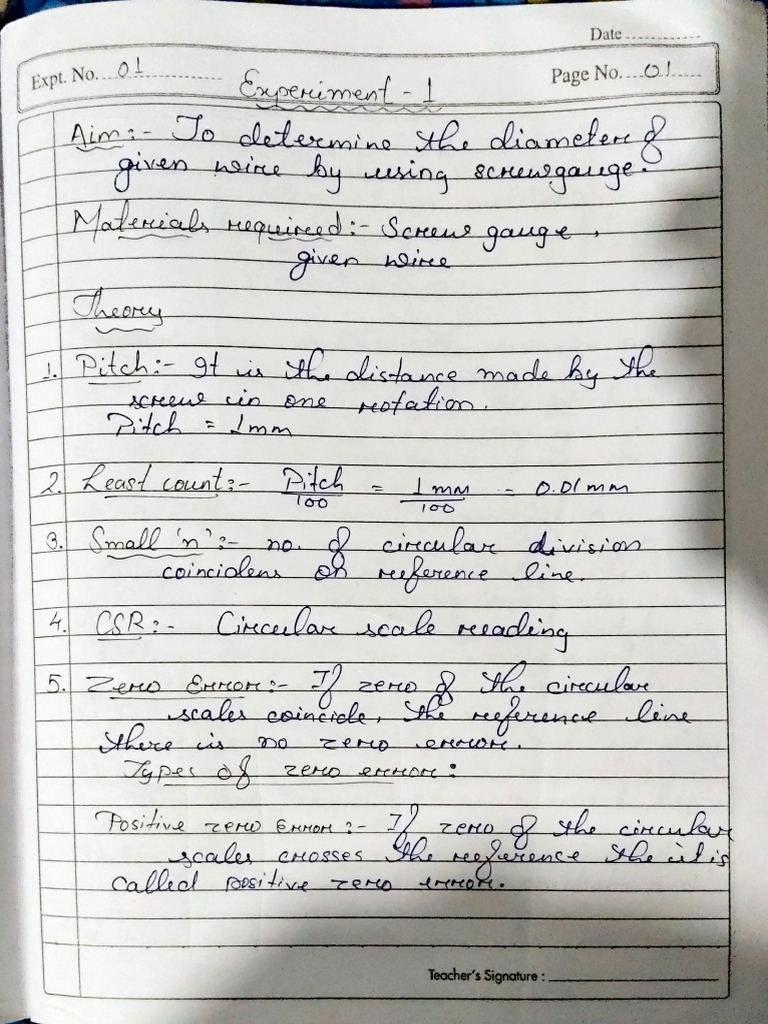 Date
Expt. No. 01
Experiment - 1
Page No. 01
Aim:- To determine the diameter of
given wire by using screwgauge.
Materials required:- Screw gauge,
given wire
Theory
1. Pitch:- It is the distance made by the
screw in one rotation.
Pitch = 1mm
2. Least count:- Pitch/100 = 1mm/100 = 0.01mm
3. Small 'n':- no. of circular division
coincidens on reeference line.
4. CSR:- Circular scale reading
5. Zero Error:- If zero of the circular
scales coincide, the reeference line
there is no zero error.
Types of zero error:
Positive zero Error:- If zero of the circular
scales crosses the reeference the it is
called positive zero error.
Teacher's Signature :